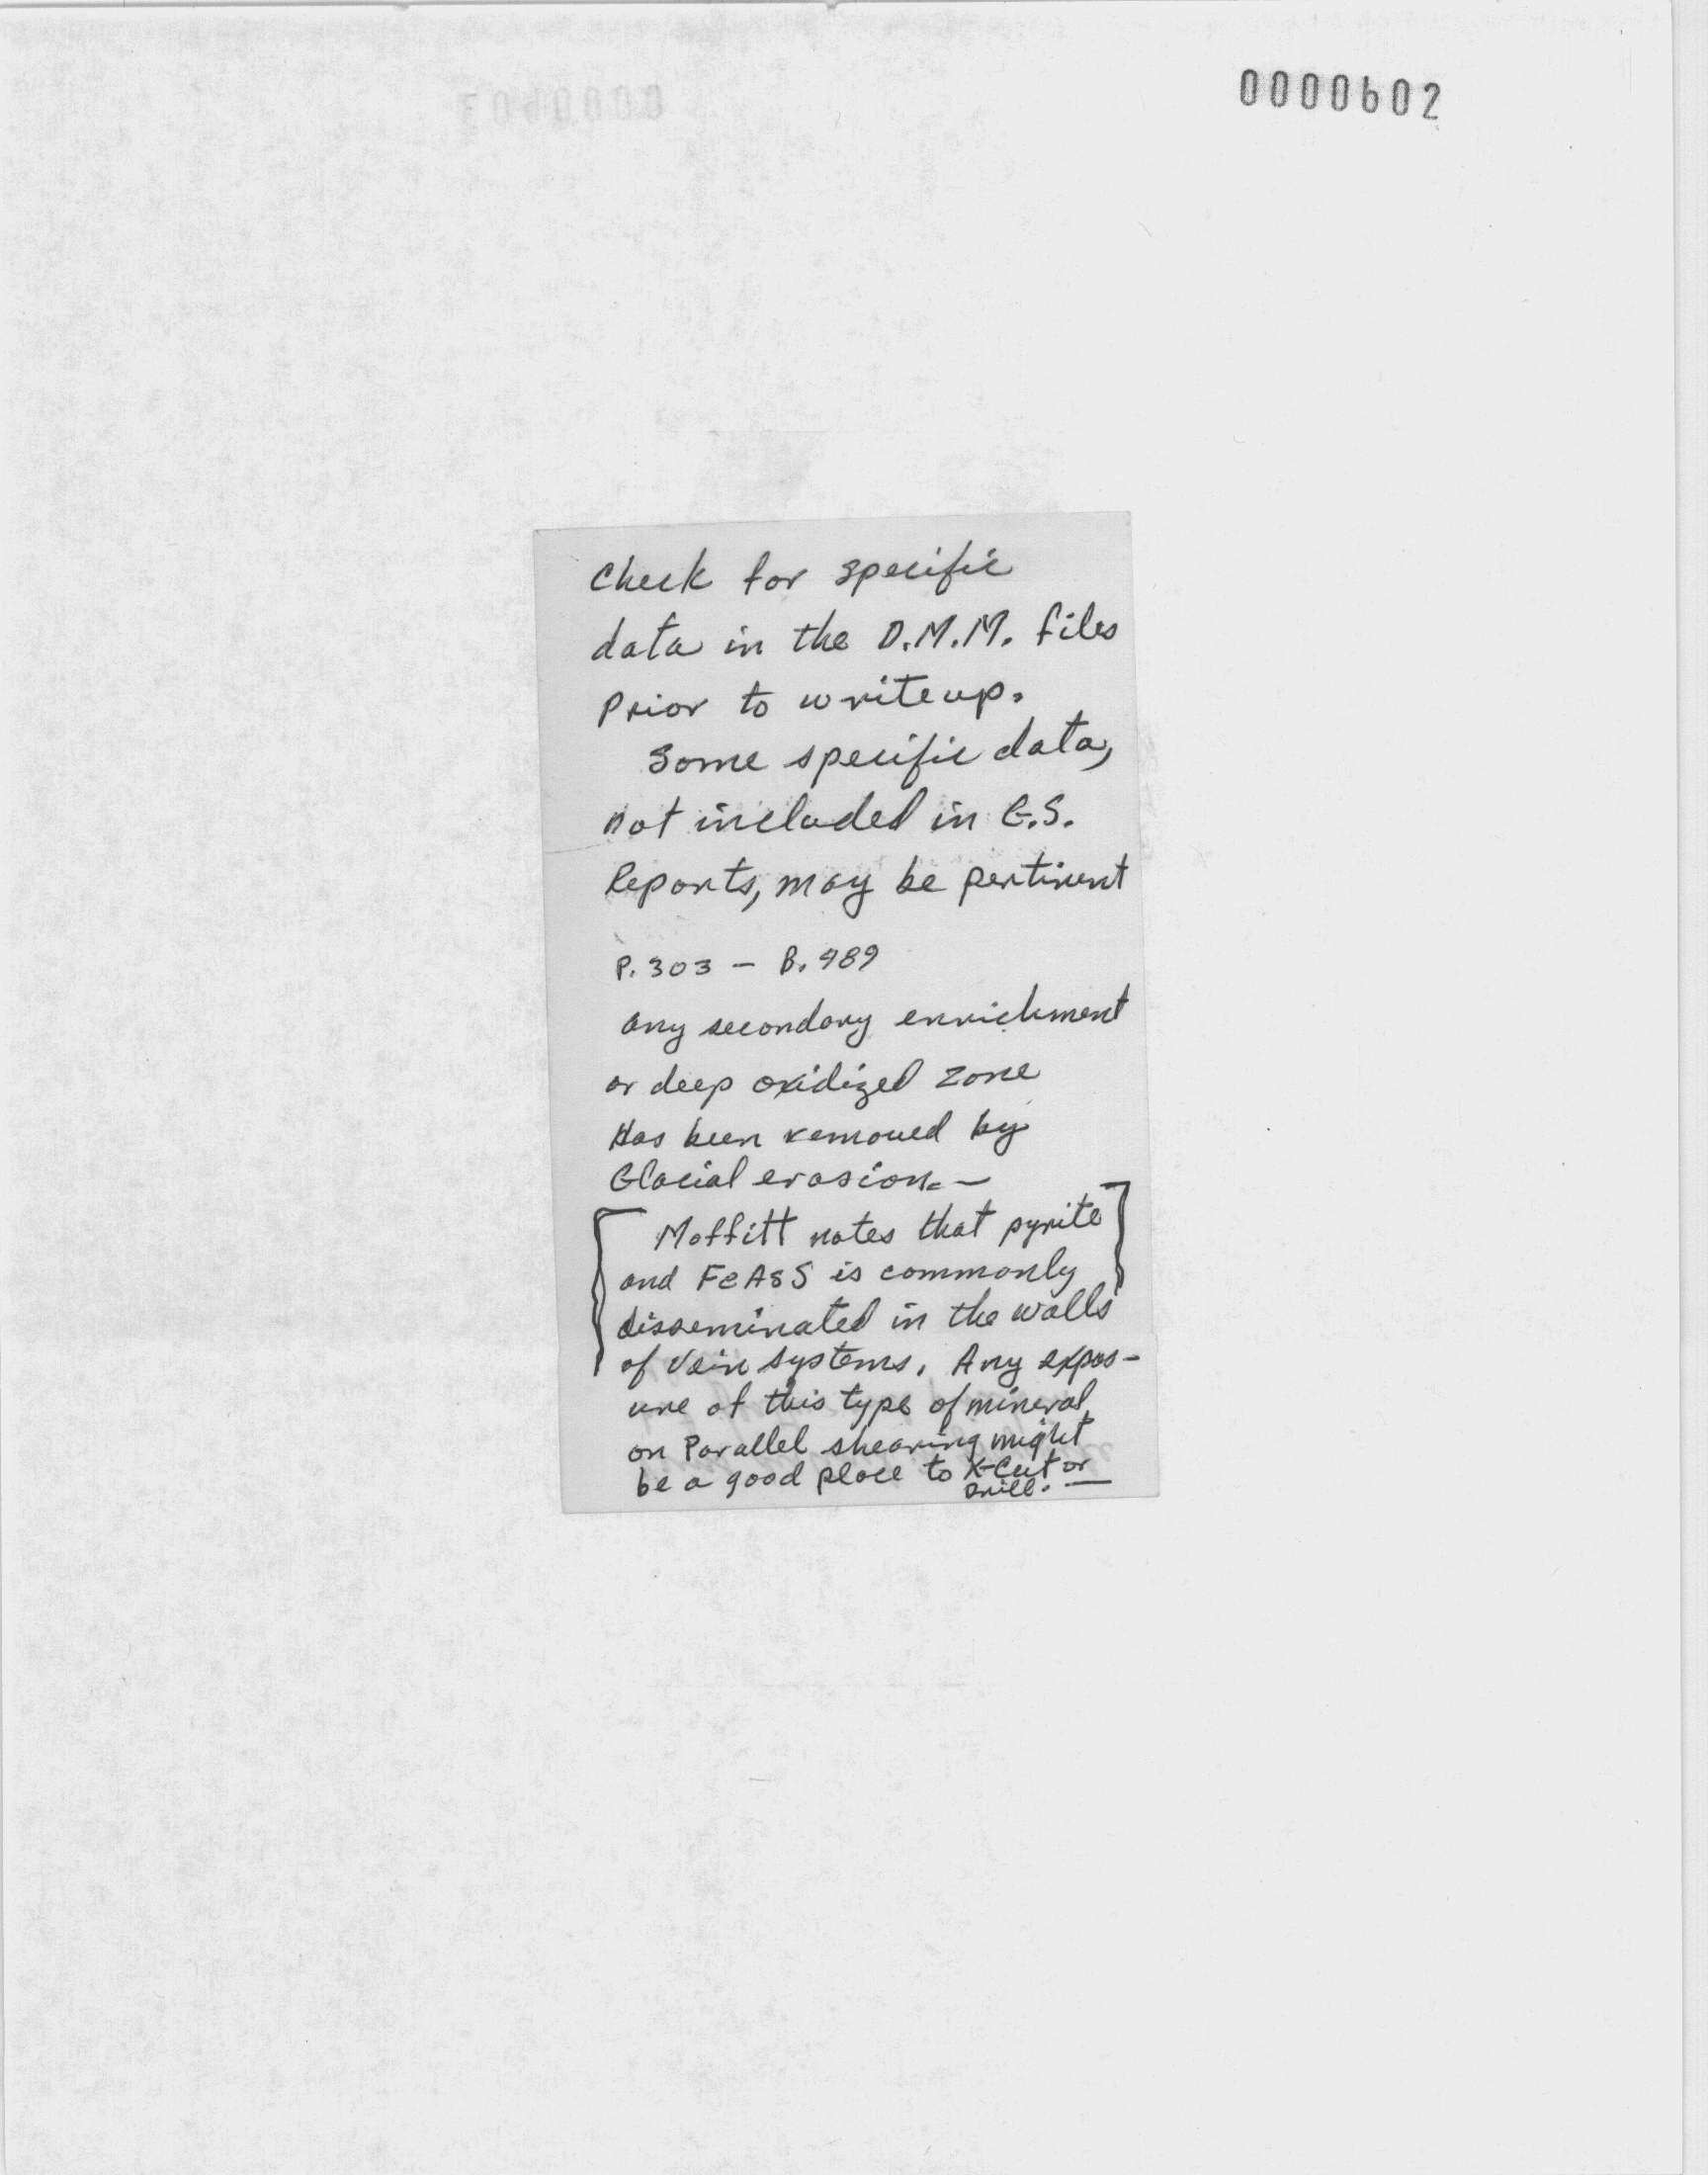 0000602
Check for specific
data in the D.M.M. files
Prior to writeup.
Some specific data,
not included in G.S.
Reports, may be pertinent
P. 303 - B. 989
any secondary enrichment
or deep oxidized zone
Has been removed by
Glacial erosion. —
Moffitt notes that pyrite
and FeAsS is commonly
disseminated in the walls
of vein systems. Any expos-
ure of this type of mineral
on Parallel shearing might
be a good place to X-Cut or
Drill. —